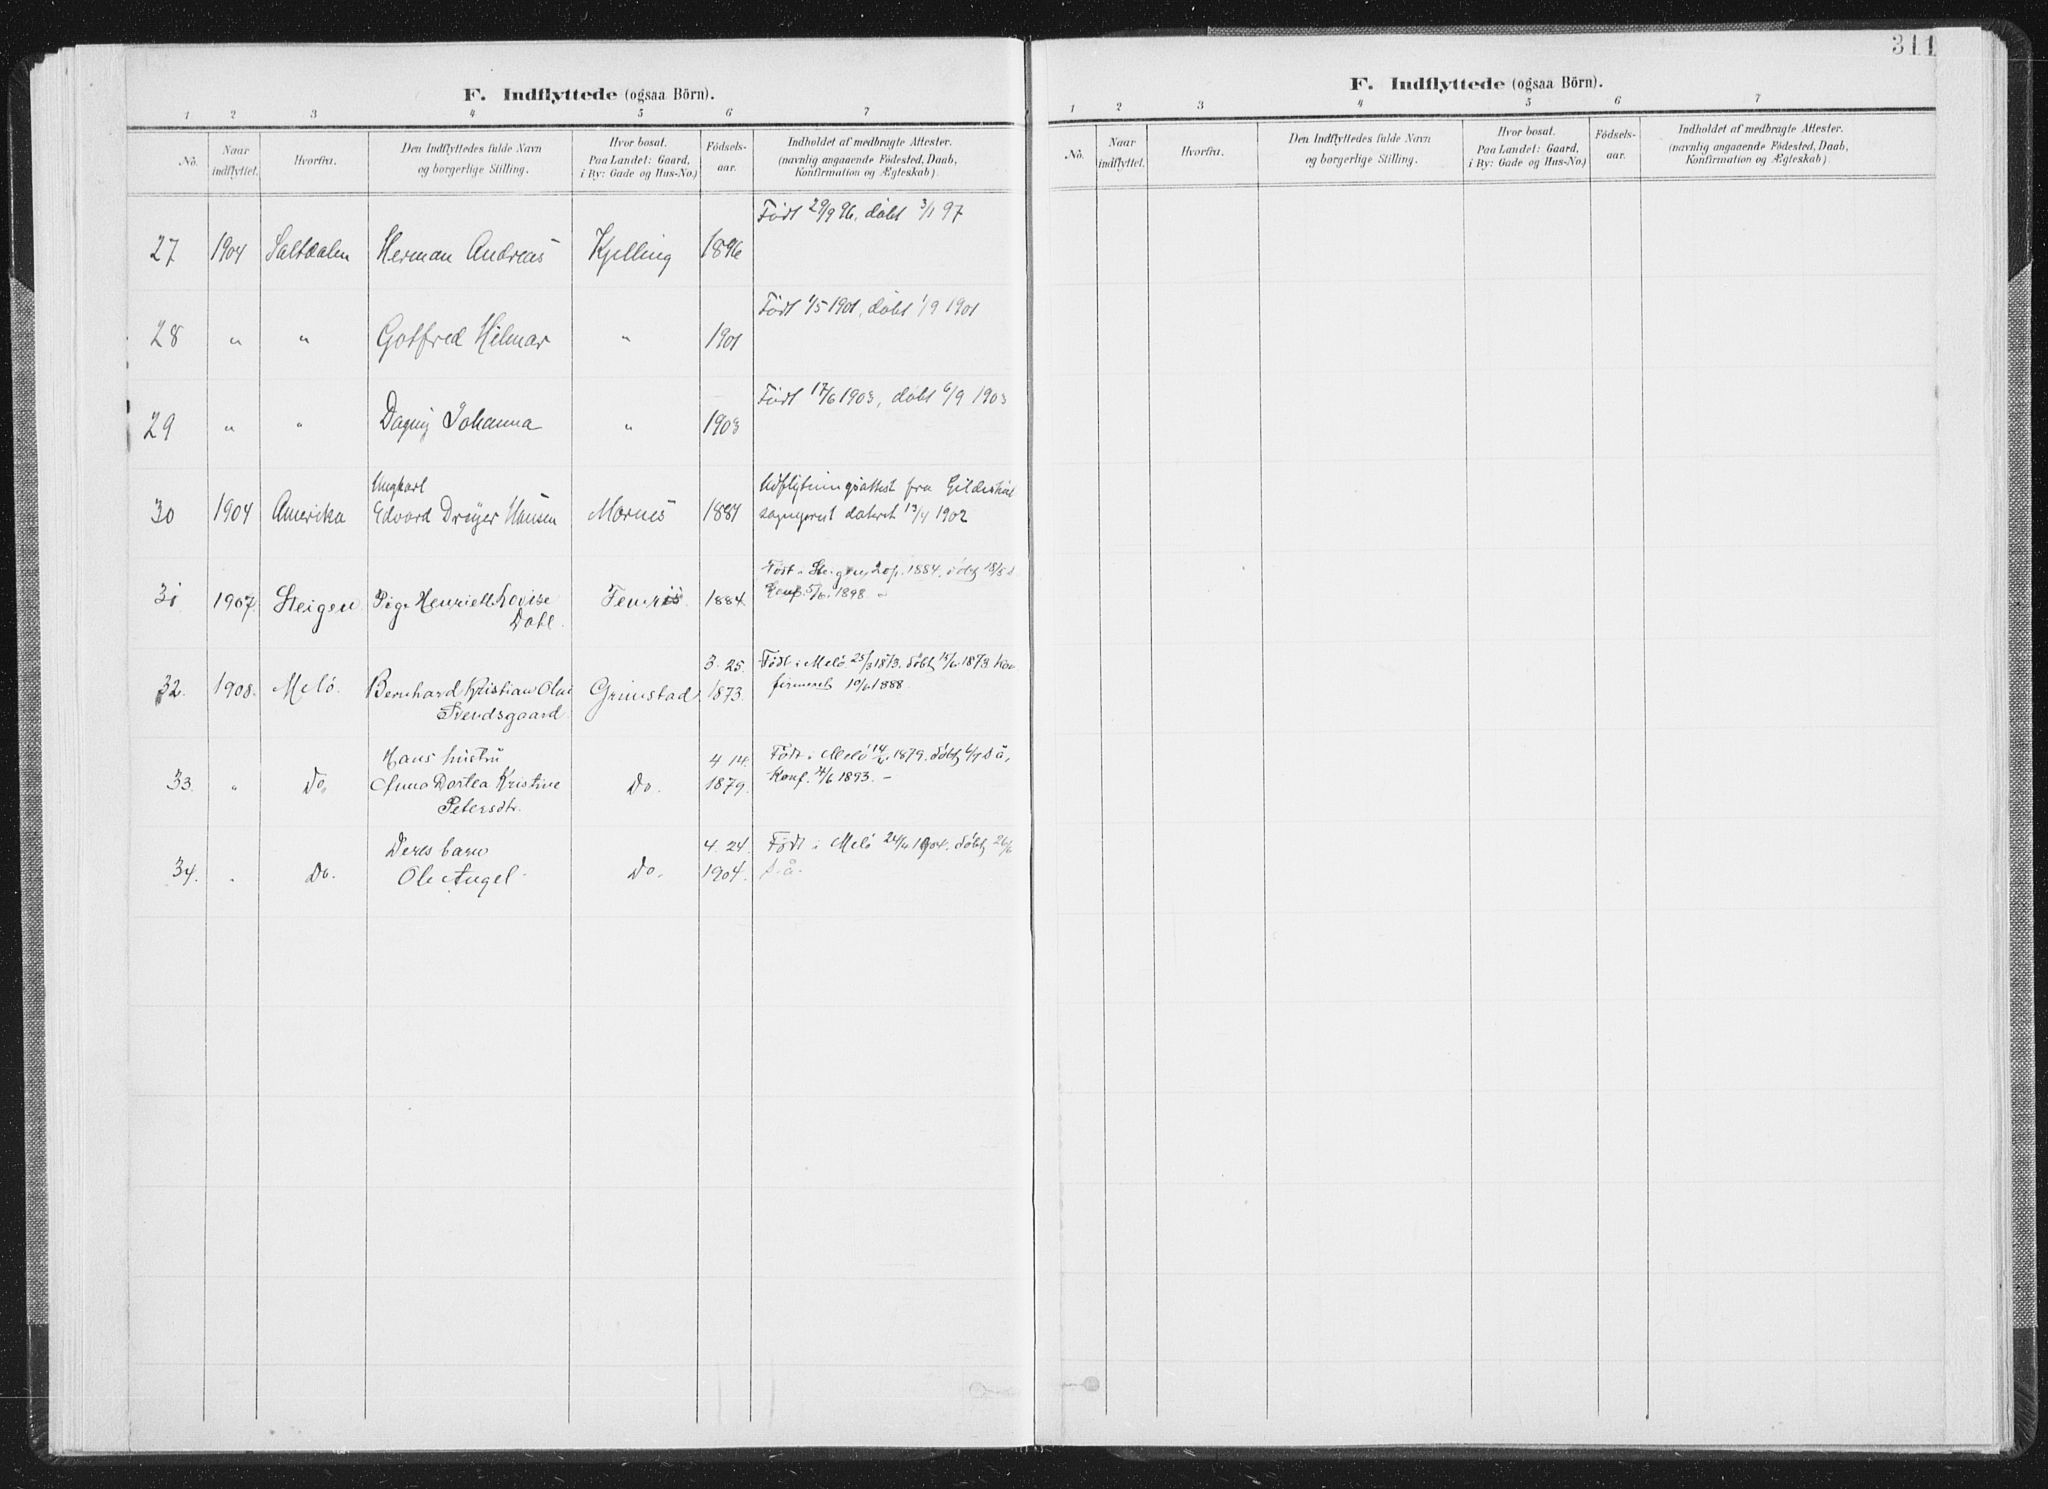 F. Indflyttede (ogsaa Börn).
1 2 3 4 5 6 7
No. Naar indflyttet. Hvorfra. Den Indflyttedes fulde Navn og borgerlige Stilling. Hvor bosat. Paa Landet: Gaard, i By: Gade og Hus-No.) Fødsels-aar. Indholdet af medbragte Attester. (navnlig angaaende Födested, Daab, Konfirmation og Ægteskab).
Født 29/9 96, døbt 3/1 97
27 1904 Saltdalen Herman Andreas Kjelling 1896
Født 1/5 1901, døbt 1/9 1901
28 " " Gotfred Hilmar " 1901
Født 17/6 1903, døbt 6/9 1903
29 " " Dagny Johanna " 1903
Ungkarl Udflytningsattest fra Gildeskål
30 1904 Amerika Edvard Dreyer Hansen Mornes 1884 sogneprest dateret 13/4 1902
Født i Steigen 1884. döbt 18/5
31 1907. Steigen Pige Henriette Lovise Femris. 1884. Konf. 5/6. 1898. –
Dahl.
3. 25. Född i Melö 25/3 1873. döbt 15/6. 1873. Kon-
32. 1908. Melö. Bernhard Kristian Olai Grimstad 1873. firmeret 10/6 1888.
Svendsgaard.
Hans hustru 4 14. Född i Melö 14/4 1879. döbt 6/7 s å,
33. " Do, Anna Dortea Kristine Do. 1879. Konf. 4/6 1893. –
Petersdtr.
Deres barn 4. 24. Född i Melö 24/4 1904. döbt 26/6
34. " Do. Ole Angel. Do. 1904. s. å.
311
F. Indflyttede (ogsaa Börn).
1 2 3 4 5 6 7
No. Naar indflyttet. Hvorfra. Den Indflyttedes fulde Navn og borgerlige Stilling. Hvor bosat. Paa Landet: Gaard, i By: Gade og Hus-No.) Fødsels-aar. Indholdet af medbragte Attester. (navnlig angaaende Födested, Daab, Konfirmation og Ægteskab)